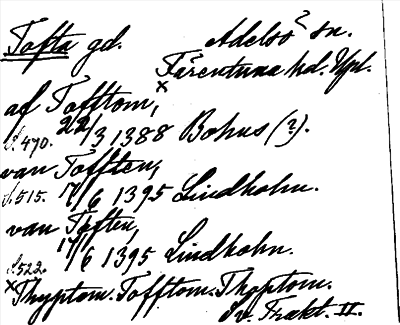 Tofta gd. Adelsö sn.
Färentuna hd. Upl.
af Tofftom,
S. 470. 22/3 1388 Bohus (?).
van Tofften,
S. 515. 17/6 1395 Lindholm.
van Toften,
S. 522. 17/6 1395 Lindholm.
x Thyptom. Tofftom. Thoptom.
Sv. Trakt. II.